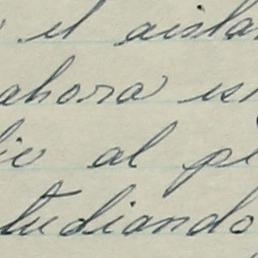 el aisla
ahora es
al pe
tudiando